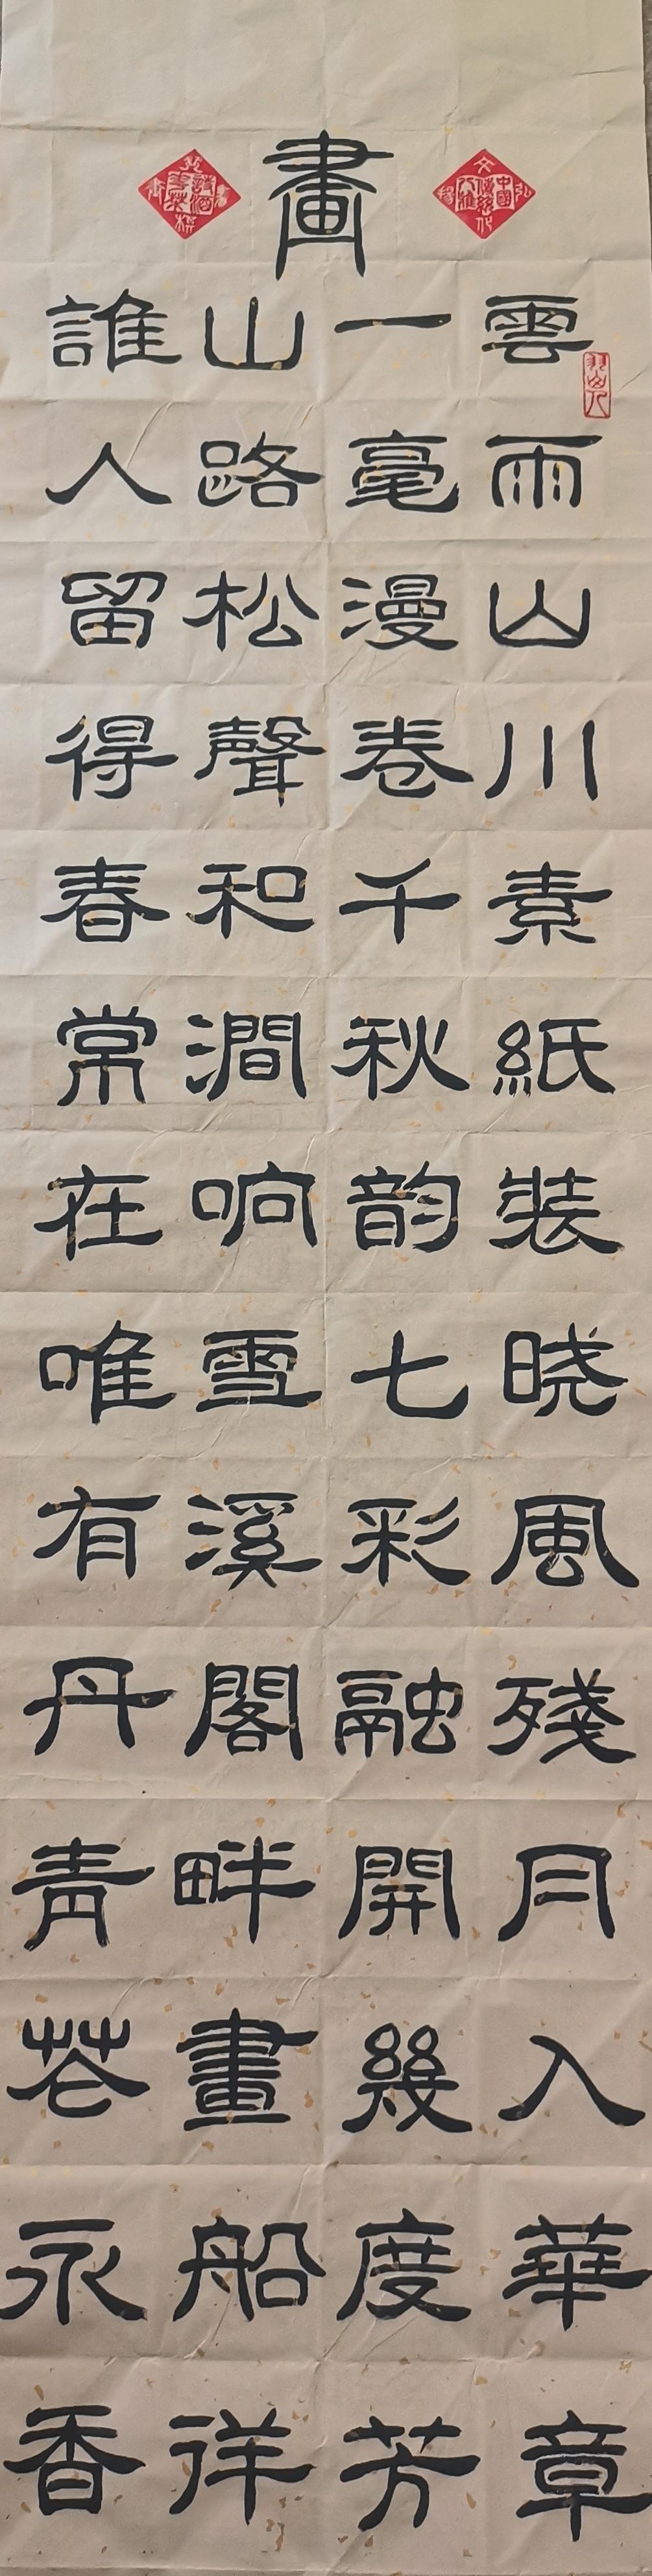 畫
雲雨山川素紙裝晓風殘月入華章
一毫漫卷千秋韵七彩融開幾度芳
山路松聲和澗响雪溪閣畔畫船徉
誰人留得春常在唯有丹青花永香